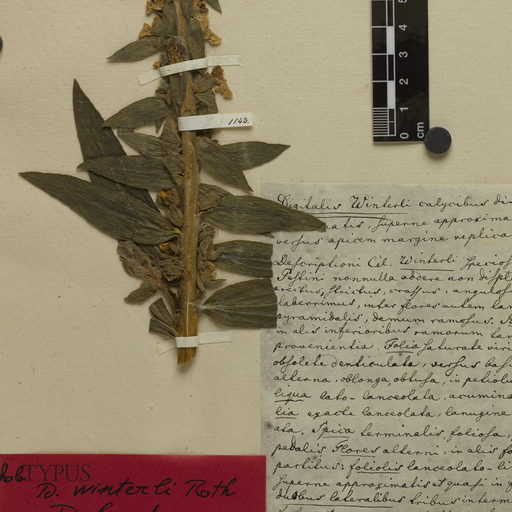 0 1 2 3 4
cm
1142.
Digitalis Winterli calycibus
atis superne approxima
versus apicem margine replica
Descriptioni Cel. Winterli
nonnulla
strictus, crassus, angulos
laberrimus, inter flores autem lan
pyramidalis, demum ramosus.
in alis inferioribus ramorum
provenientia. Folia saturate viri
obsolete denticulata, versus basi
alterna, oblonga, obtusa, in petiol
liqua lato-lanceolata, acumina
lia exacte lanceolata, lanugine
ata. Spica terminalis, foliosa,
pedalis Flores alterni, in alis fo
partitus: foliolis lanceolato-li
superne approximatis et quasi in
duobus lateralibus tribus interm
holo TYPUS
D. winterli Roth